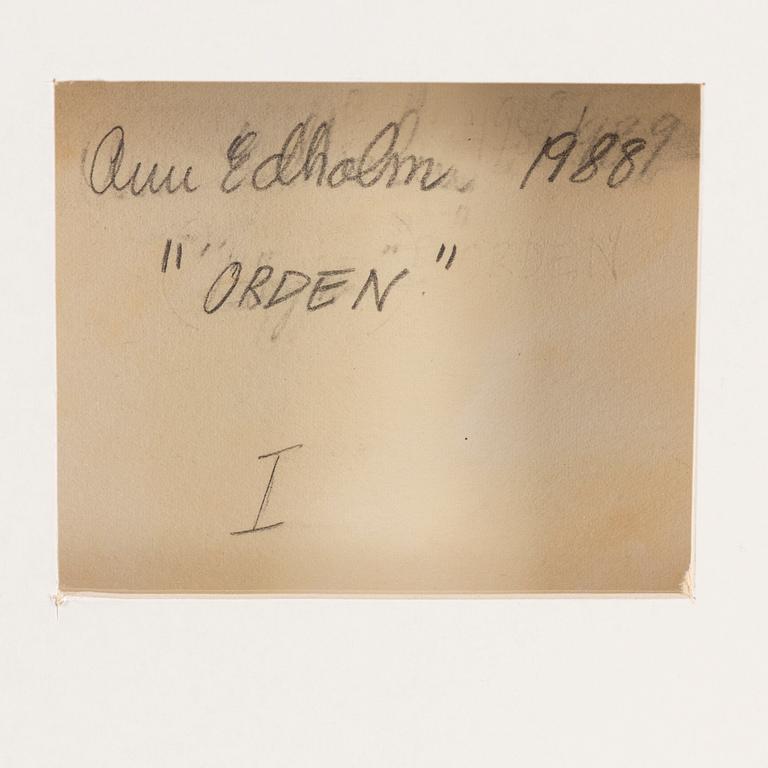 Ann Edholm 1988
"ORDEN"
I